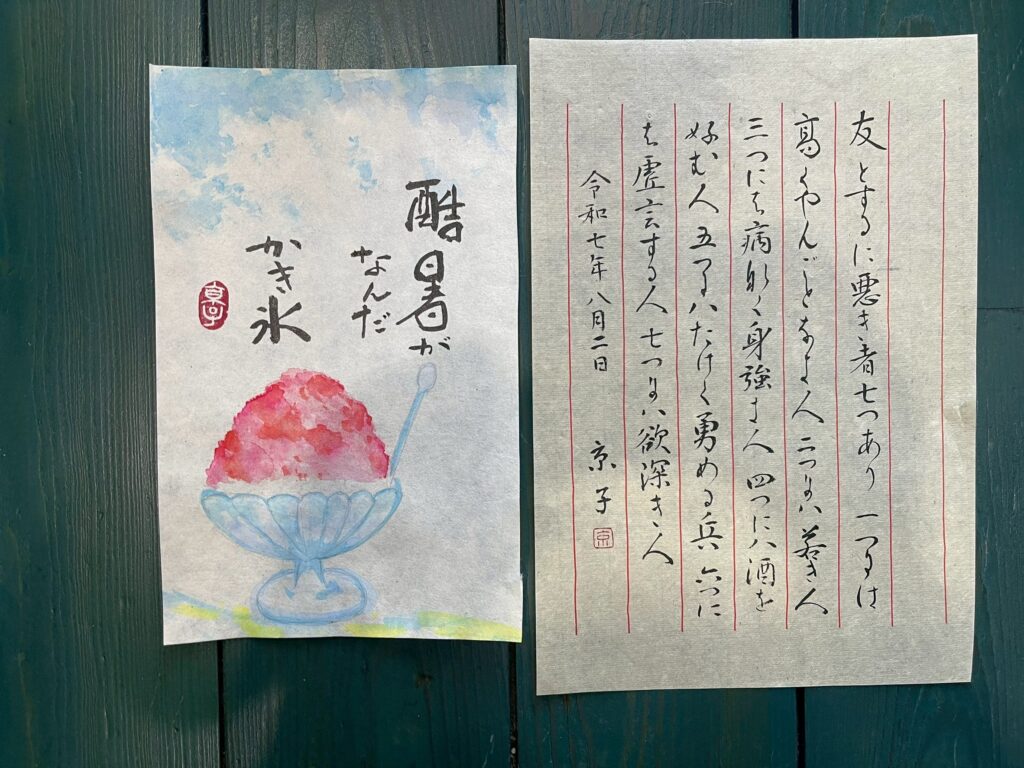 酷暑が
なんだ
かき氷
京子
友とするに悪き者七つあり 一つには
高くやんごとなき人 二つには若き人
三つには病なく身強き人 四つには酒を
好む人 五つにはたけく勇める兵 六つに
は虚言する人 七つには欲深き人
令和七年八月二日 京子
京